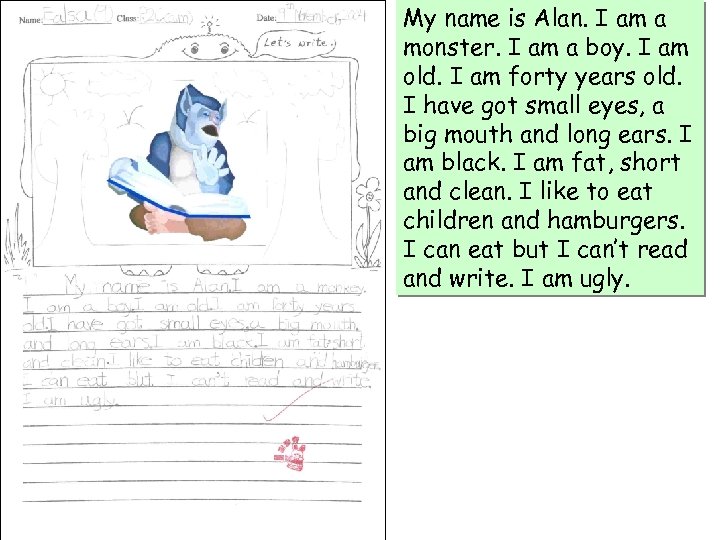 Name: Class: Date:
Let's write.
My name is Alan.I am a monkey.
I am a boy.I am old.I am forty years
old.I have got small eyes,a big mouth.
and long ears.I am black.I am fat,short
and clean.I like to eat children and hamburgers.
can eat but I can't read and write.
I am ugly.
My name is Alan. I am a
monster. I am a boy. I am
old. I am forty years old.
I have got small eyes, a
big mouth and long ears. I
am black. I am fat, short
and clean. I like to eat
children and hamburgers.
I can eat but I can't read
and write. I am ugly.